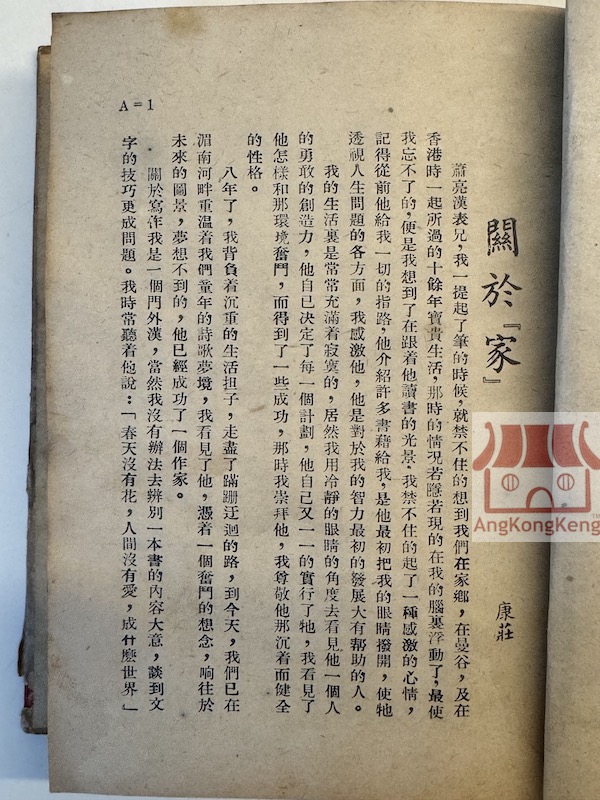 關於『家』
康莊
蕭亮漢表兄,我一提起了筆的時候,就禁不住的想到我們在家鄉,在曼谷,及在
香港時一起所過的十餘年寶貴生活,那時的情況若隱若現的在我的腦裏浮動了,最使
我忘不了的,便是我想到了在跟着他讀書的光景,我禁不住的起了一種感激的心情,
記得從前他給我一切的指路,他介紹許多書藉給我,是他最初把我的眼睛撥開,使牠
透視人生問題的各方面,我感激他,他是對於我的智力最初的發展大有幫助的人。
我的生活裏是常常充滿着寂寞的,居然我用冷靜的眼睛的角度去看見他一個人
的勇敢的創造力,他自己決定了每一個計劃,他自己又一一的實行了牠,我看見了
他怎樣和那環境奮鬥,而得到了一些成功,那時我崇拜他,我尊敬他那沉着而健全
的性格。
八年了,我背負着沉重的生活担子,走盡了蹣跚迂迴的路,到今天,我們已在
湄南河畔重溫着我們童年的詩歌夢境,我看見了他,憑着一個奮鬥的想念,响往於
未來的圖景,夢想不到的,他已經成功了一個作家。
關於寫作我是一個門外漢,當然我沒有辦法去辨別一本書的內容大意,談到文
字的技巧更成問題。我時常聽着他說:「春天沒有花,人間沒有愛,成什麼世界」
A=1
AngKongKeng